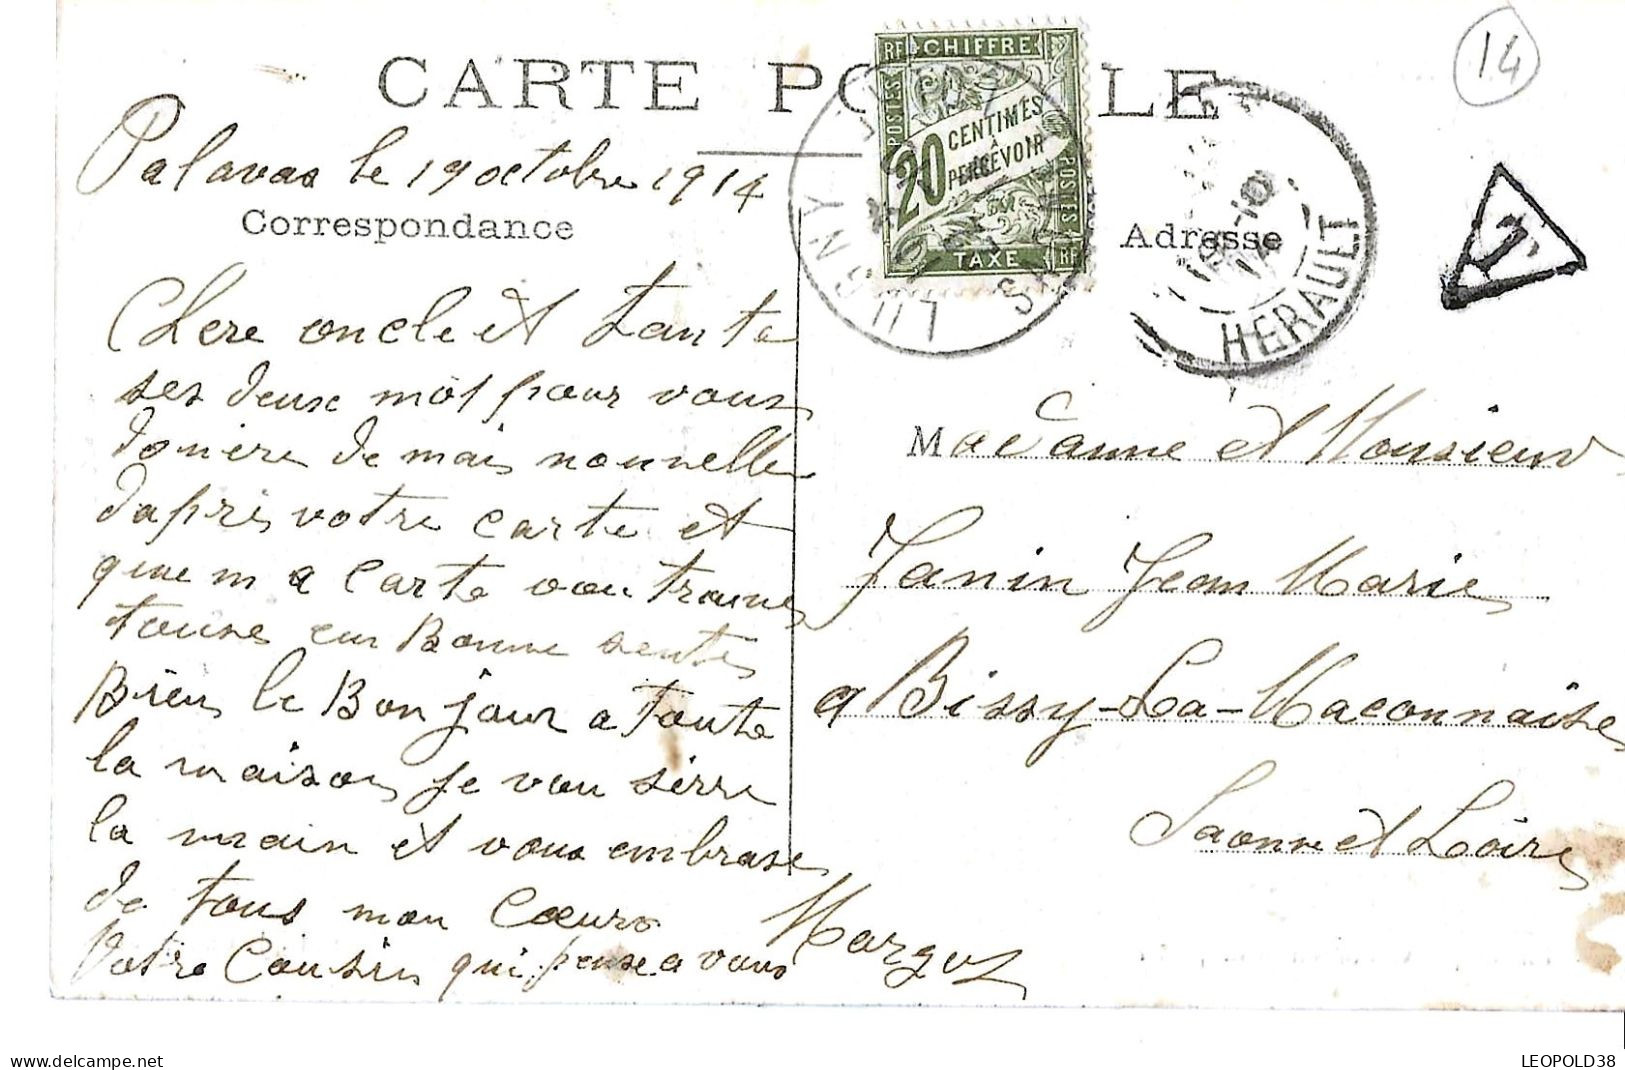 CARTE POSTALE
14
RF CHIFFRE
POSTES
20 CENTIMES
A
PERCEVOIR
POSTES
TAXE RF
LUGNY
HERAULT
19-10
14
T
Palavas le 19 octobre 1914
Correspondance
Adresse
Chere oncle et Tante
ses deux mot pour vous
donnère de mais nouvelle
dapres votre carte et
que ma carte vou trouve
touse en Bonne sente
Bien le Bonjour a toute
la maison je vou serre
la main et vous embrase
de tous mon Cœur
Votre Cousin qui pense a vous
Margot
Madame et Monsieur
Janin Jean Marie
a Bissy-La-Maconnaise
Saonne et Loire
delcampe.net
LEOPOLD38